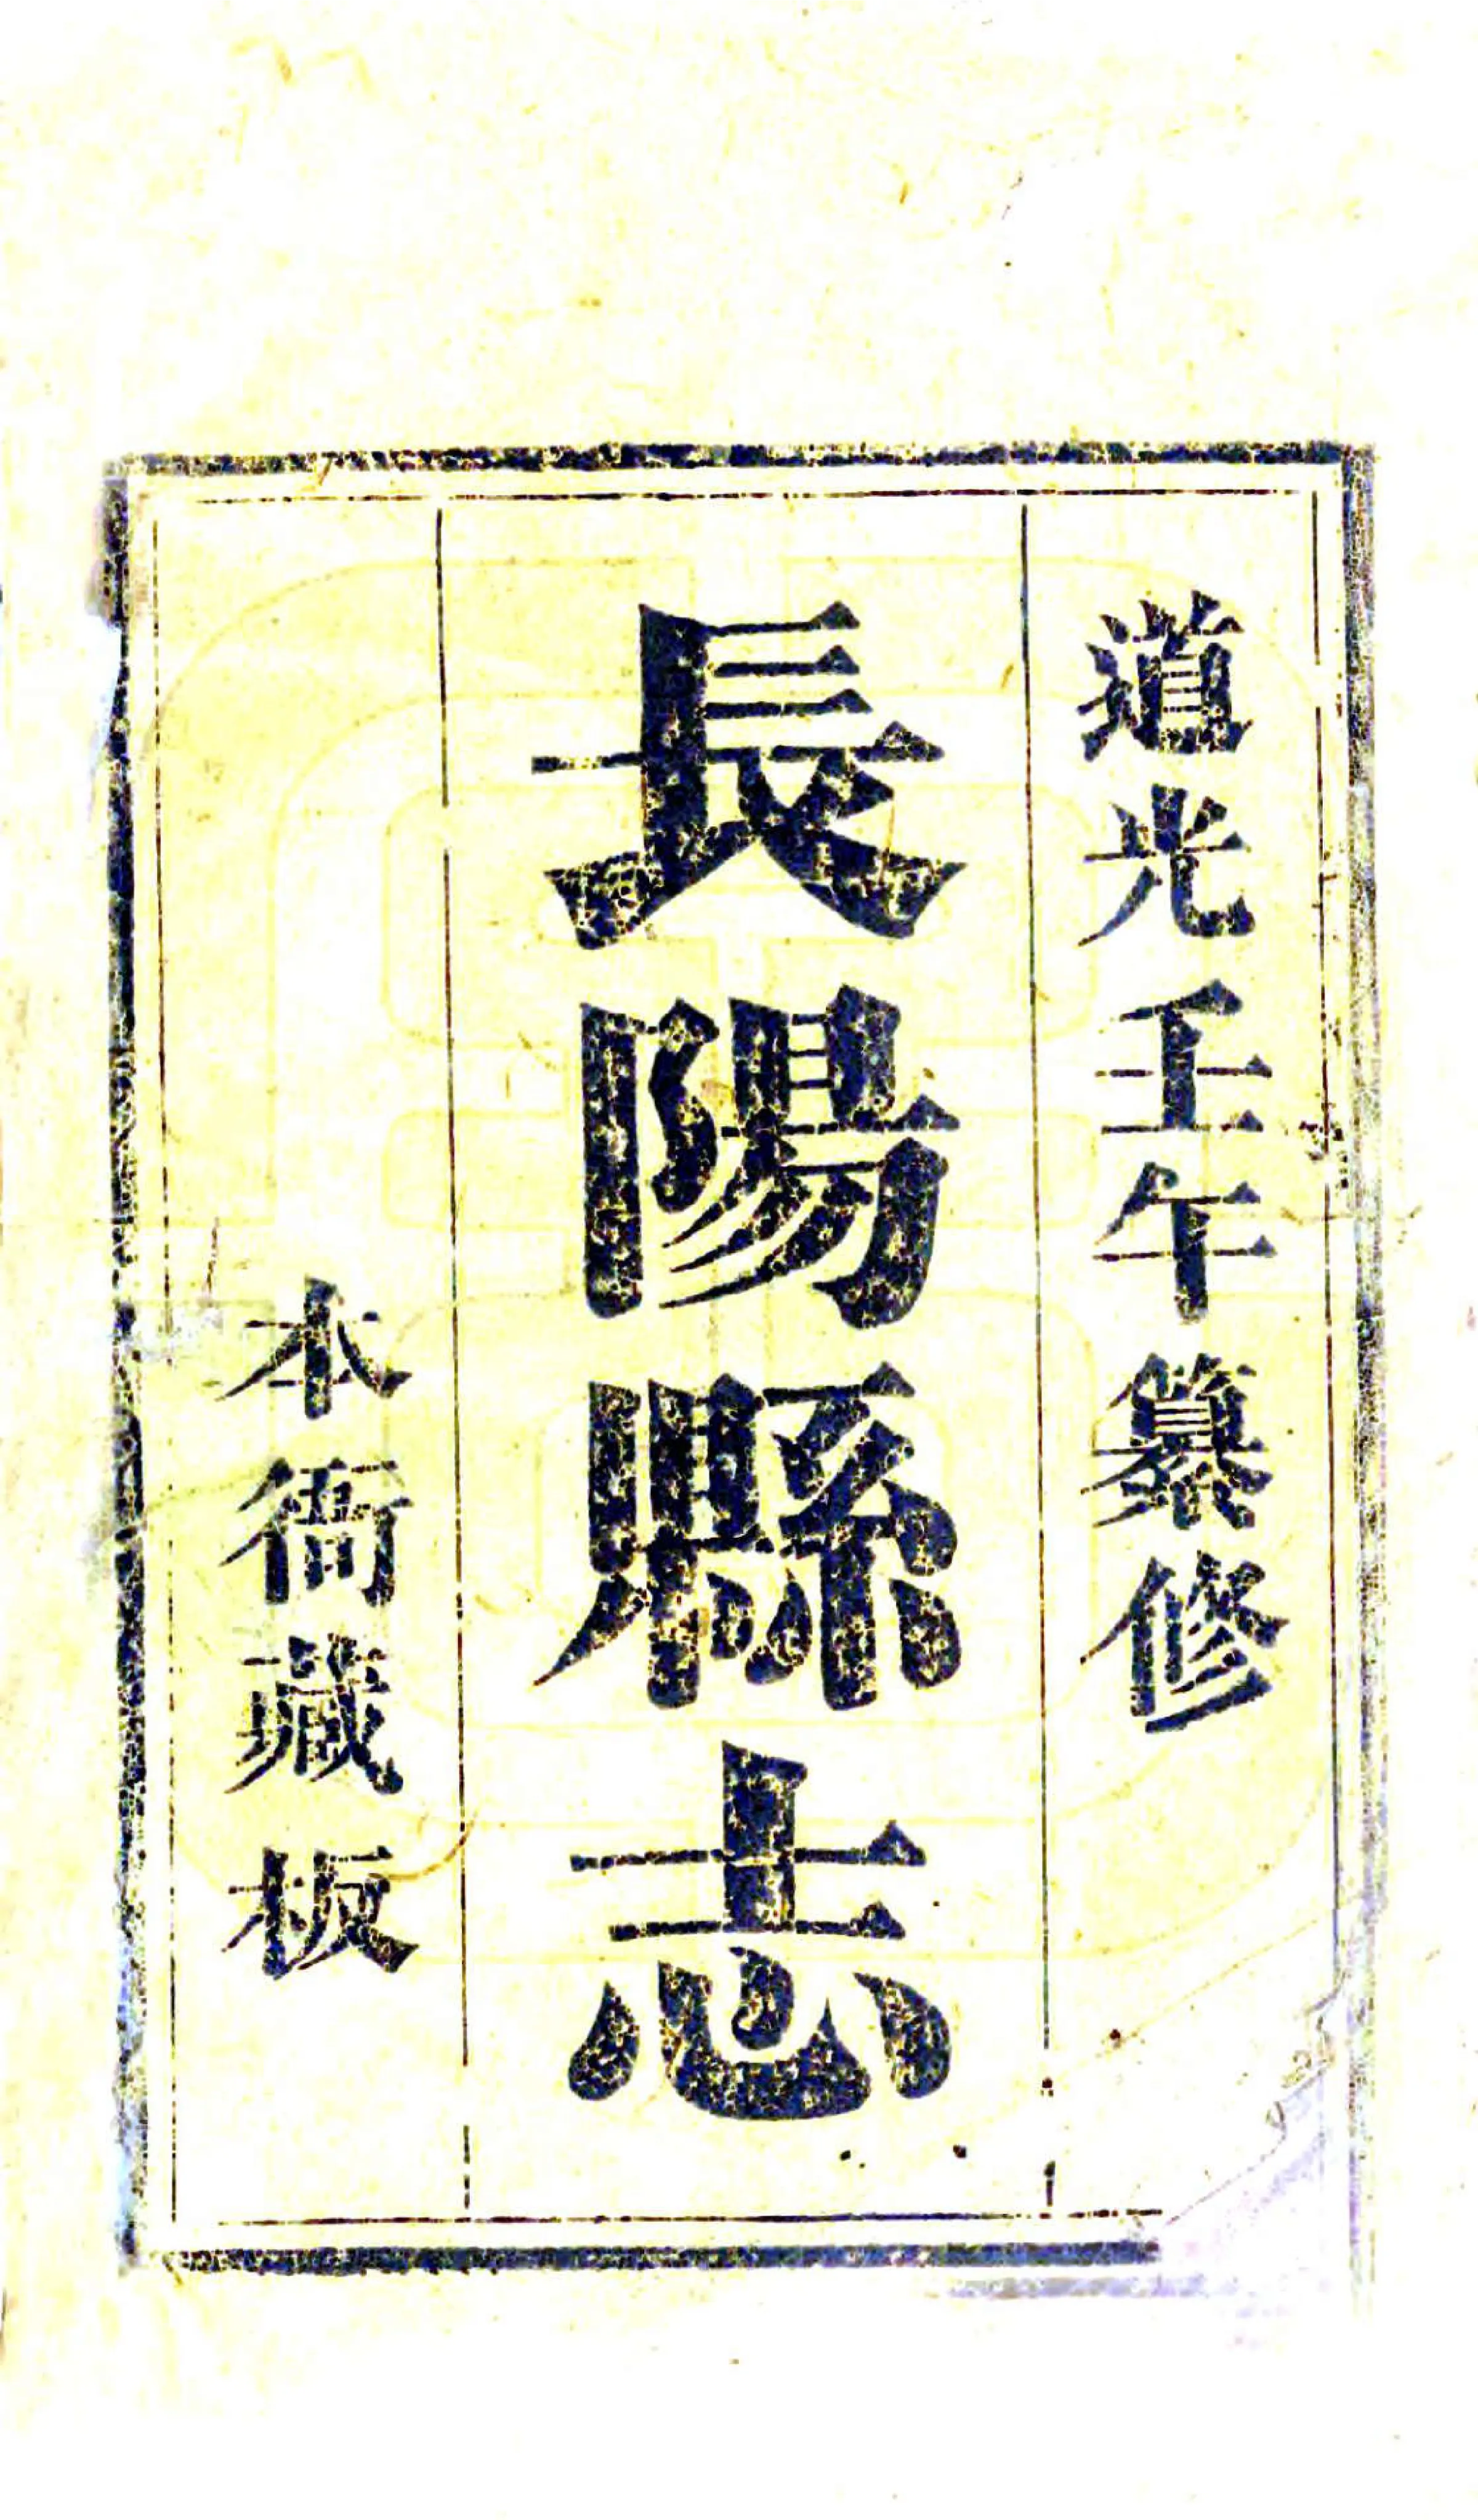 道光壬午纂修
長陽縣志
本衙藏板